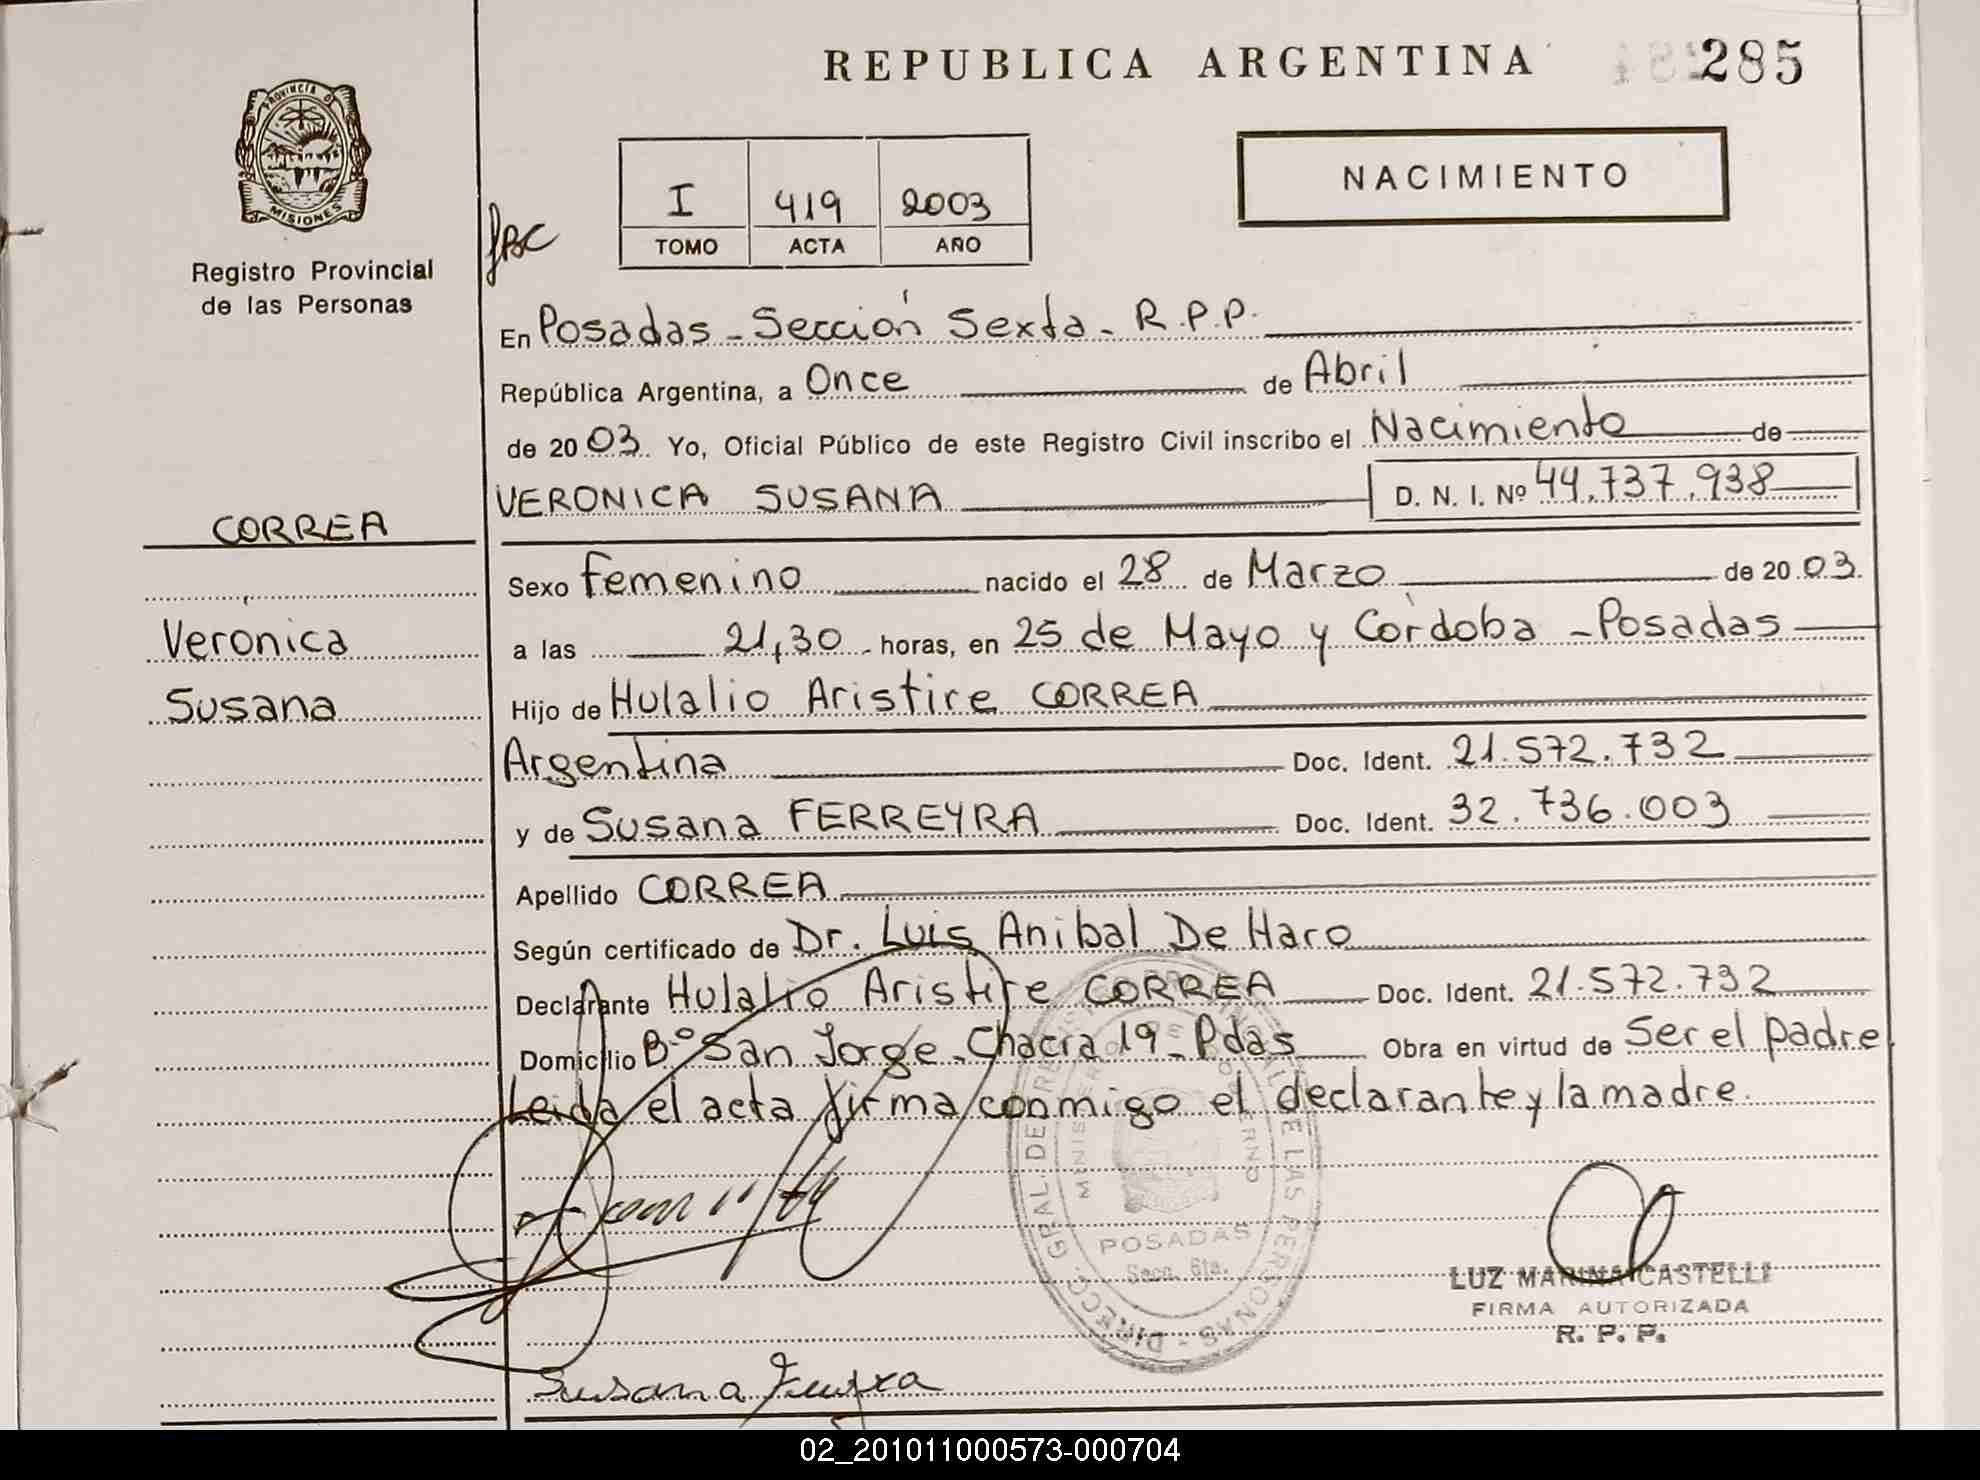 REPUBLICA ARGENTINA 285
PROVINCIA DE
MISIONES
Registro Provincial
de las Personas
NACIMIENTO
I 419 2003
TOMO ACTA AÑO
En Posadas - Sección Sexta - R.P.P.
República Argentina, a Once de Abril
de 2003. Yo, Oficial Público de este Registro Civil inscribo el Nacimiento de
VERONICA SUSANA D. N. I. Nº 44.737.938
CORREA
Veronica
Susana
Sexo Femenino nacido el 28 de Marzo de 2003.
a las 21,30 horas, en 25 de Mayo y Córdoba - Posadas
Hijo de Hulalio Aristire CORREA
Argentina Doc. Ident. 21.572.732
y de Susana FERREYRA Doc. Ident. 32.736.003
Apellido CORREA
Según certificado de Dr. Luis Anibal De Haro
Declarante Hulalio Aristire CORREA Doc. Ident. 21.572.732
Domicilio Bº San Jorge - Chacra 19 - Pdas Obra en virtud de Ser el padre
Leida el acta firma conmigo el declarante y la madre.
POSADAS
Secc. 6ta.
LUZ MARINA CASTELLI
FIRMA AUTORIZADA
R. P. P.
Susana Ferreyra
02_201011000573-000704